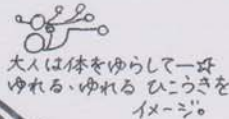 大人は体をゆらして一☆
ゆれる、ゆれる ひこうきを
イメージ。